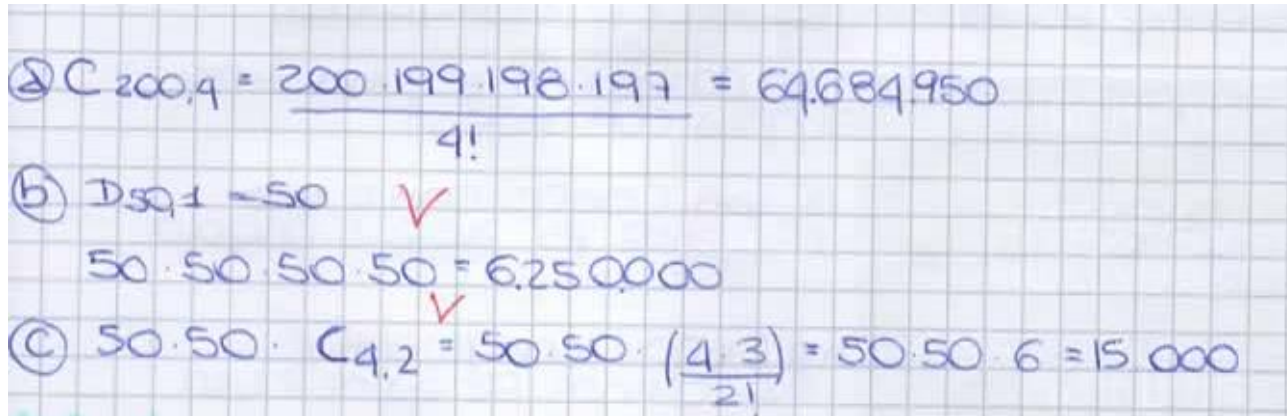 a) C 200,4 = 200·199·198·197 / 4! = 64.684.950
b) D 50,1 = 50
50·50·50·50 = 6.250000
c) 50·50· C 4,2 = 50·50· (4·3 / 2!) = 50·50·6 = 15.000